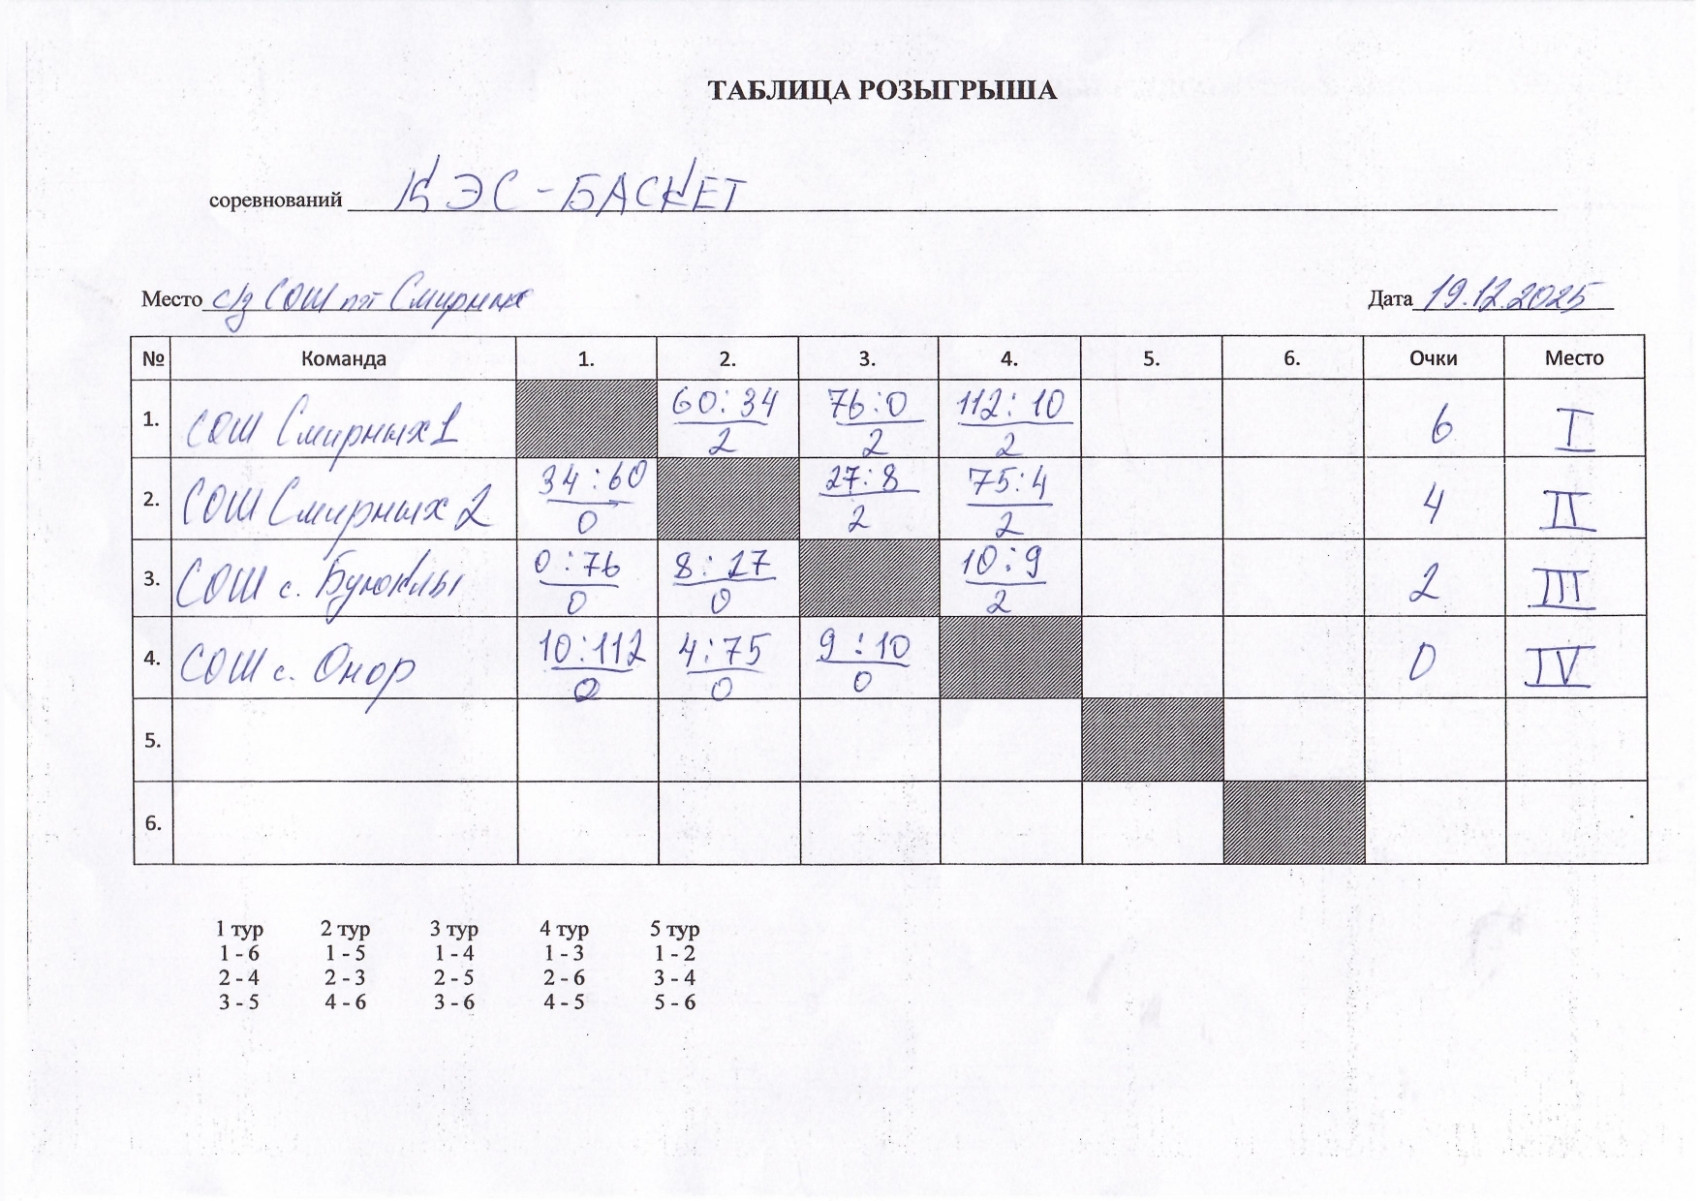 ТАБЛИЦА РОЗЫГРЫША
соревнований КЭС-БАСКЕТ
Место с/з СОШ пгт Смирных Дата 19.12.2025
№ Команда 1. 2. 3. 4. 5. 6. Очки Место
1. СОШ Смирных 1 60:34 76:0 112:10 6 I
2 2 2
2. СОШ Смирных 2 34:60 27:8 75:4 4 II
0 2 2
3. СОШ с. Буюклы 0:76 8:27 10:9 2 III
0 0 2
4. СОШ с. Онор 10:112 4:75 9:10 0 IV
0 0 0
5.
6.
1 тур 2 тур 3 тур 4 тур 5 тур
1 - 6 1 - 5 1 - 4 1 - 3 1 - 2
2 - 4 2 - 3 2 - 5 2 - 6 3 - 4
3 - 5 4 - 6 3 - 6 4 - 5 5 - 6